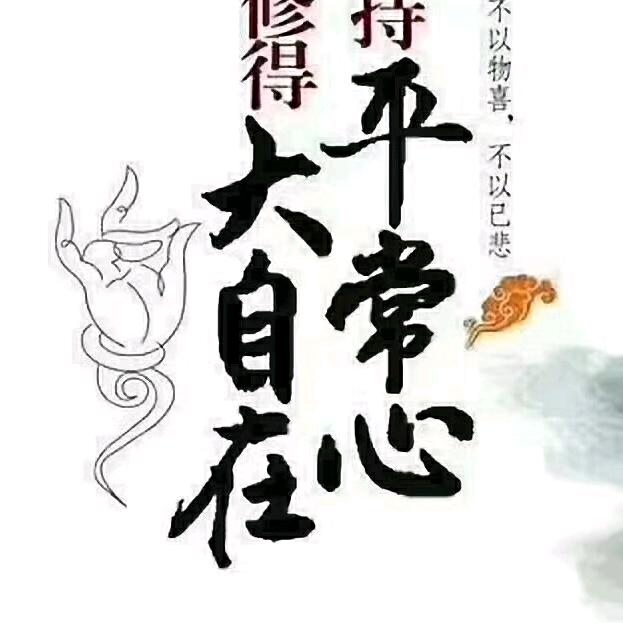 不以物喜，不以己悲
持平常心
修得大自在